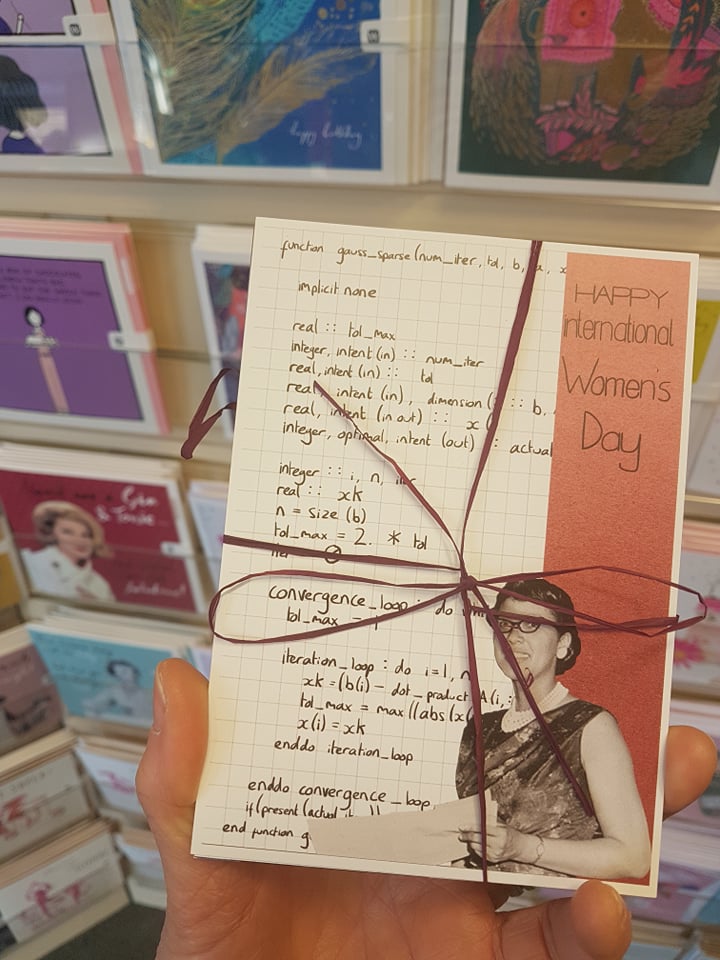 happy birthday
function gauss_sparse (num_iter, tol, b, A, x
implicit none
real :: tol_max
integer, intent (in) :: num_iter
real, intent (in) :: tol
real, intent (in), dimension ( :: b,
real, intent (in out) :: x (
integer, optional, intent (out) : actual
integer :: i, n, iter
real :: xk
n = size (b)
tol_max = 2. * tol
iter
convergence_loop : do
tol_max =
iteration_loop : do i=1, n
xk = (b(i) - dot_product A(i, :
tol_max = max ((abs (x(
x(i) = xk
enddo iteration_loop
enddo convergence_loop
if (present (actual_it
end function g
HAPPY
international
Women's
Day